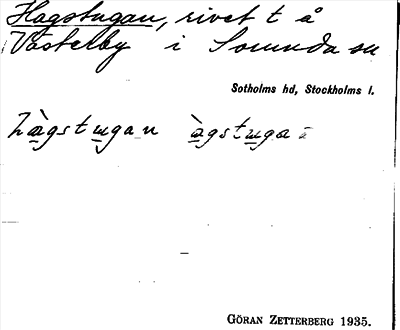 Hagstugan, rivet t å
Västelby i Sorunda sn
Sotholms hd, Stockholms l.
hàgstugan àgstuga
GÖRAN ZETTERBERG 1935.